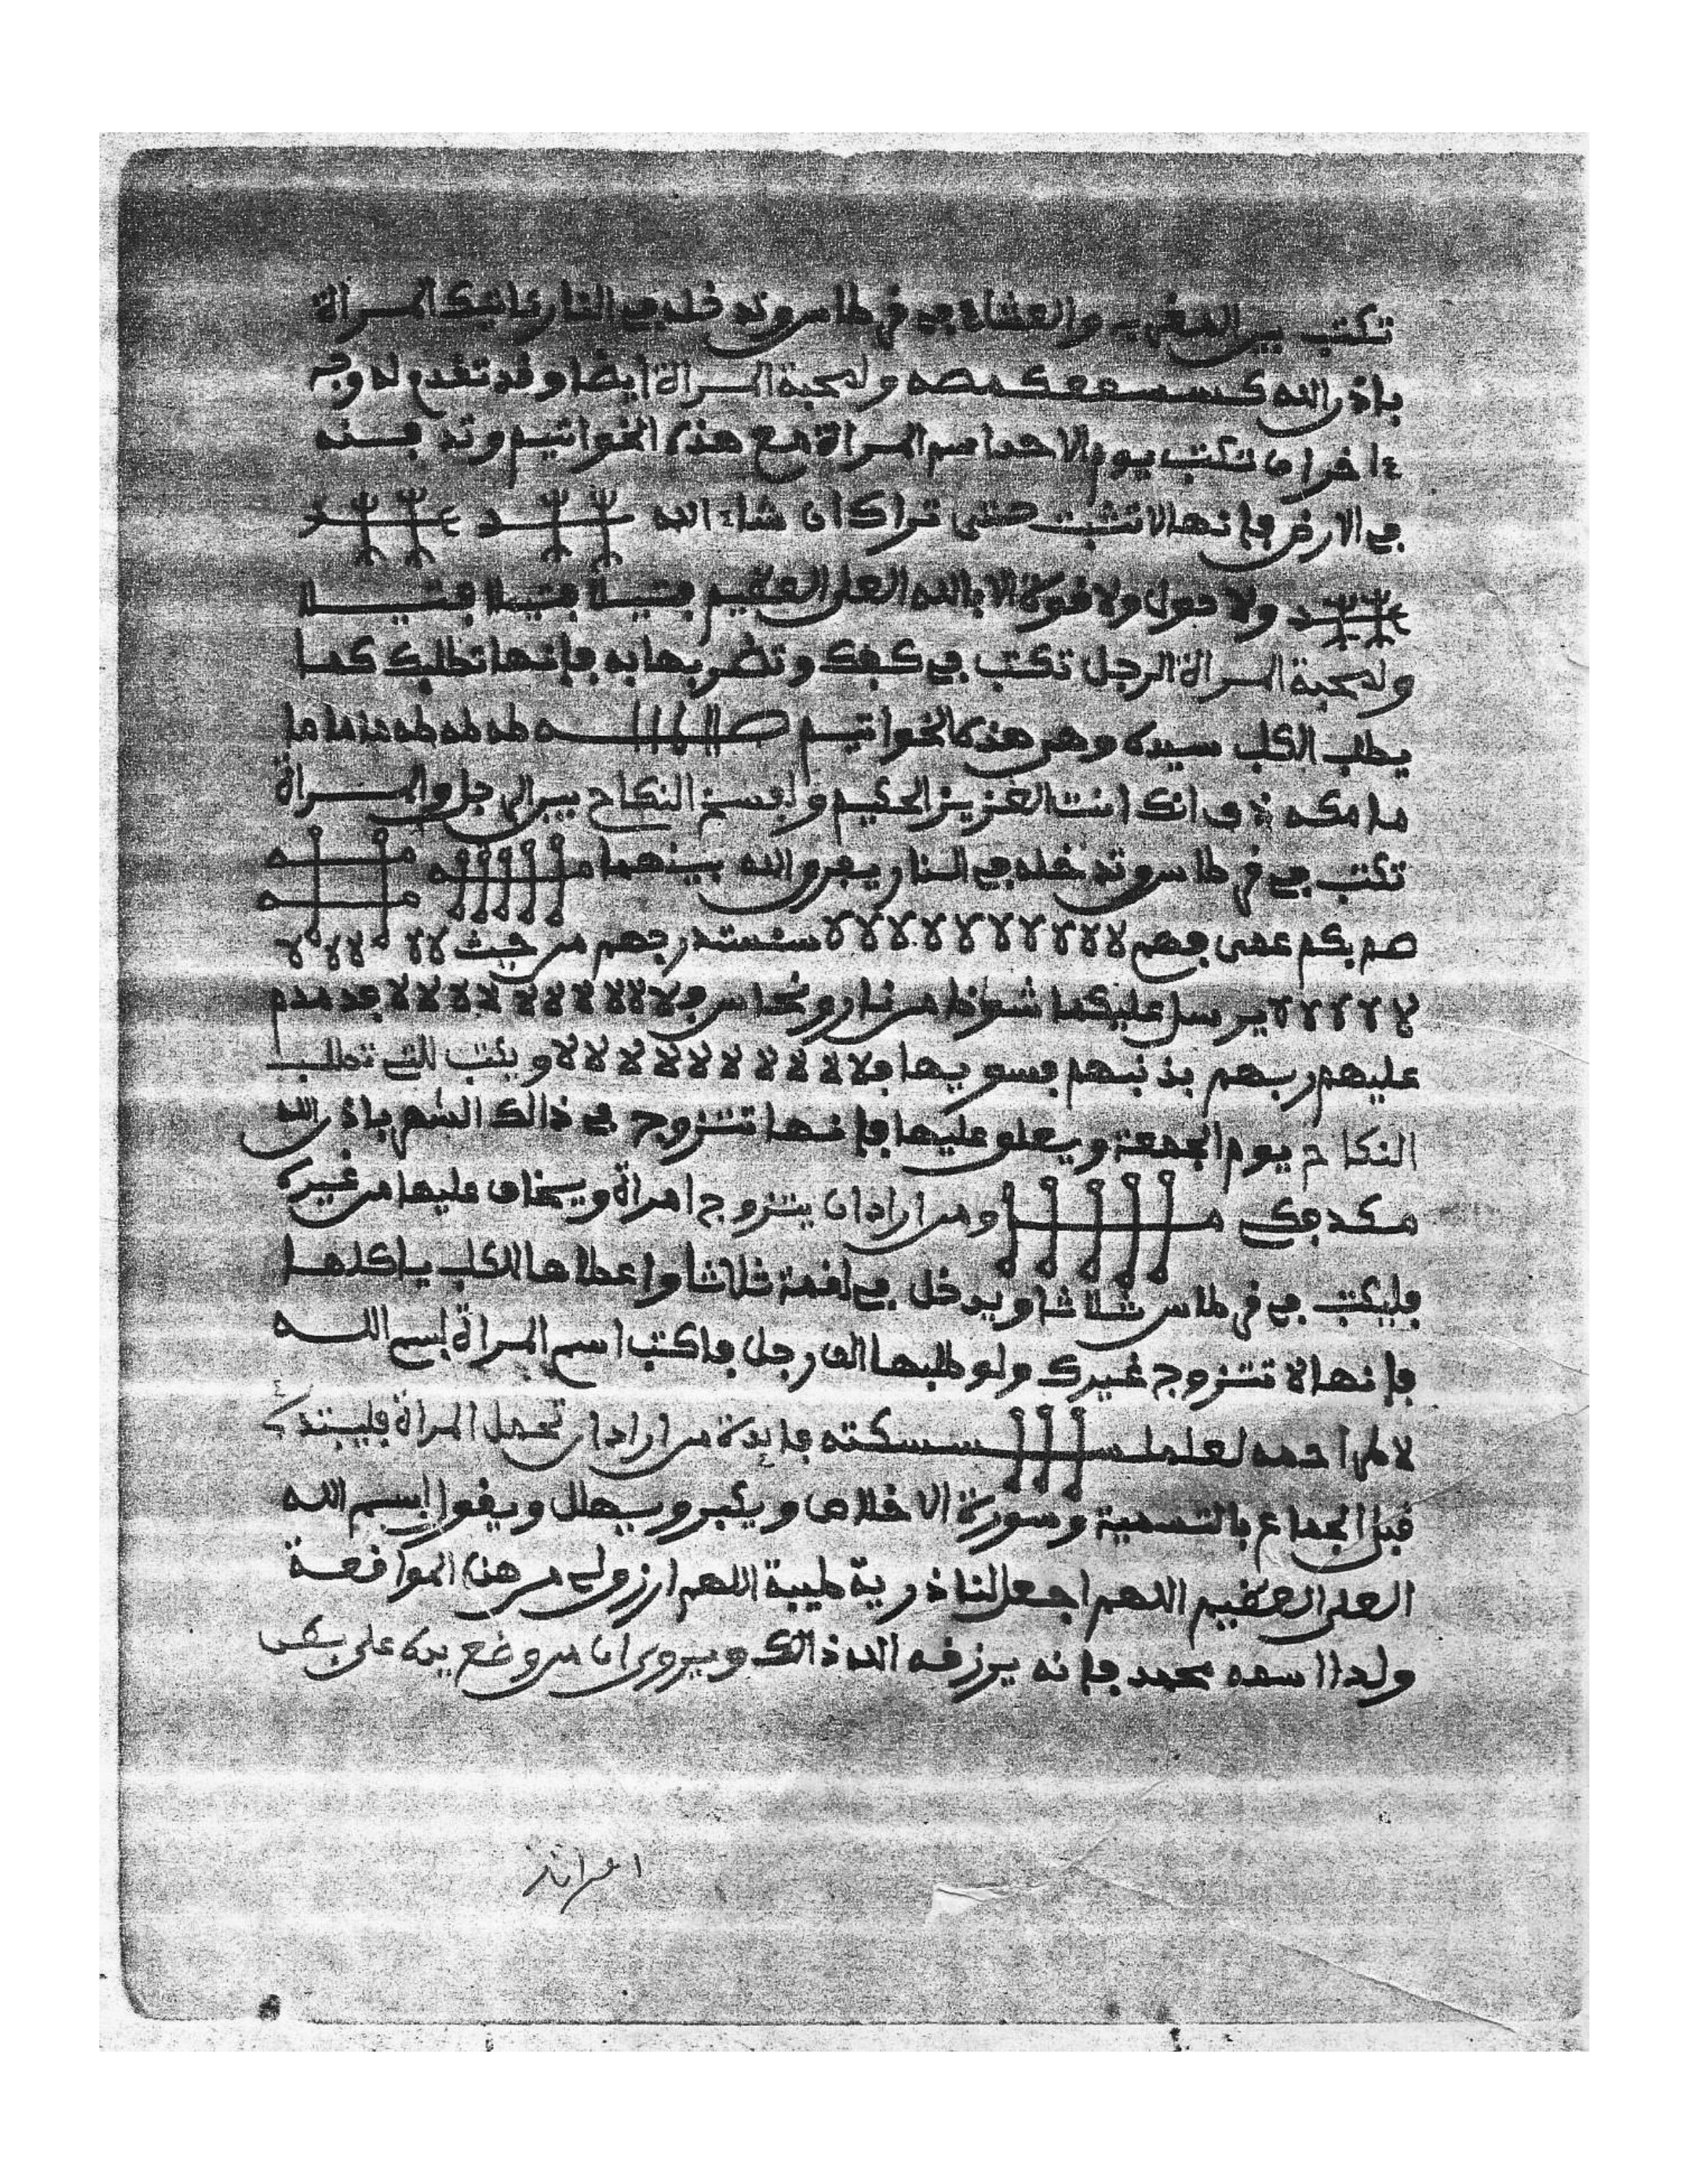 تكتب بين المغرب والعشاء في قرطاس وتدخله في النار تاتيك المرأة
باذن الله ولمحبة المرأة ايضا وقد تقدم له وجه
ءاخر ان تكتب يوم الاحد اسم المرأة مع هذه الخواتيم وتدفنه
في الارض فإنها لا تثبت حتى تراك ان شاء الله
ولا حول ولا قوة الا بالله العلي العظيم فتيلة فتيلة فتيلة
ولمحبة المرأة الرجل تكتب في كفك وتضربها به فإنها تطلبك كما
يطلب الكلب سيده وهي هذه الخواتيم طه طه طه ما ما ما
انك انت العزيز الحكيم ولفسخ النكاح بين الرجل والمرأة
تكتب في قرطاس وتدخله في النار يفرق الله بينهما
صم بكم عمي فهم لا لا لا لا لا لا لا لا لا سنستدرجهم من حيث لا لا لا لا لا
لا لا لا لا لا يرسل عليكما شواظ من نار ونحاس فلا لا لا لا لا لا لا لا لا فدمدم
عليهم ربهم بذنبهم فسويها فلا لا لا لا لا لا لا لا لا لا ويكتب للتي تطلب
النكاح يوم الجمعة ويعلق عليها فإنها تتزوج في ذالك الشهر باذن الله
ومن اراد ان يتزوج امرأة ويخاف عليها من غيره
فليكتب في قرطاس ثلاثا ويدخل في لقمة ثلاثا واعطاها للكلب ياكلها
فإنها لا تتزوج غيرك ولو طلبها الف رجل فاكتب اسم المرأة بسم الله
فايدة من اراد ان تحمل المرأة فليبتدئ
قبل الجماع بالتسمية وسورة الاخلاص ويكبر ويهلل ويقول بسم الله
العلي العظيم اللهم اجعل لنا ذرية طيبة اللهم ارزقني من هذه المواقعة
ولدا اسمه محمد فإنه يرزقه الله ذالك ويروى ان من وضع يده على بطن
امراته